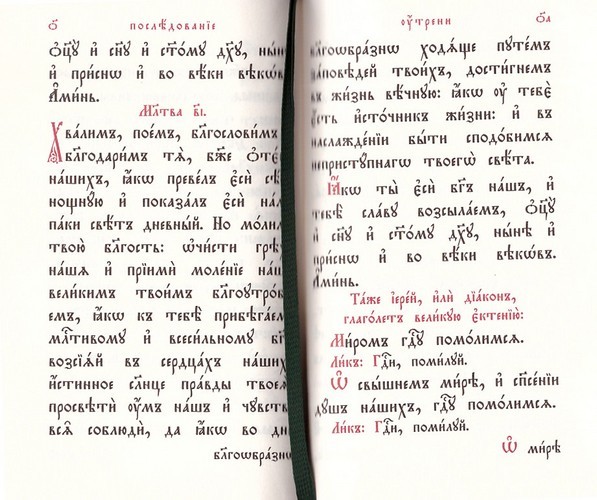 о҃ послѣ́дованїе
ѻ҆ц҃ꙋ̀ и҆ сн҃ꙋ и҆ ст҃о́мꙋ дх҃ꙋ, ны́нѣ
и҆ при́снѡ и҆ во вѣ́ки вѣкѡ́въ
А҆ми́нь.
Мл҃тва в҃і.
Хва́лимъ, пое́мъ, бл҃гослови́мъ
бл҃годари́мъ тѧ̀, бж҃е ѻ҆тє́
на́шихъ, ꙗ҆́кѡ преве́лъ є҆сѝ сѣ́
нощнꙋ́ю и҆ показа́лъ є҆сѝ на́
па́ки свѣ́тъ дневны́й. Но мо́лим
твою̀ бл҃гость: ѡ҆чи́сти грѣ
на́шѧ и҆ прїимѝ моле́нїе на́
вели́кимъ твои́мъ бл҃гоꙋтро́б
емъ, ꙗ҆́кѡ къ тебѣ̀ прибѣга́ем
мл҃тивомꙋ и҆ всеси́льномꙋ бг҃
возсїѧ́й въ сердца́хъ на́ших
и҆́стинное сл҃нце пра́вды твоеѧ̀
просвѣтѝ оу҆́мъ на́шъ и҆ чꙋ҄вств
всѧ̑ соблюдѝ, да ꙗ҆́кѡ во дн
бл҃гоѡбра́знѡ
оу҆́трени о҃а
бл҃гоѡбра́знѡ ходѧ́ще пꙋте́мъ
за́повѣдей твои́хъ, дости́гнем
въ жи́знь вѣ́чнꙋю: ꙗ҆́кѡ оу҆ тебє̀
є҆́сть и҆сто́чникъ жи́зни: и҆ въ
наслажде́нїи бы́ти сподо́бимсѧ
непристꙋ́пнагѡ твоегѡ̀ свѣ́та.
Ꙗ҆́кѡ ты̀ є҆сѝ бг҃ъ на́шъ, и҆
тебѣ̀ сла́вꙋ возсыла́емъ, ѻ҆ц҃ꙋ̀
и҆ сн҃ꙋ и҆ ст҃о́мꙋ дх҃ꙋ, ны́нѣ и҆
при́снѡ и҆ во вѣ́ки вѣкѡ́въ.
А҆ми́нь.
Та́же і҆ере́й, и҆лѝ дїа́конъ,
глаго́летъ вели́кꙋю є҆ктенїю̀:
Ми́ромъ гд҃ꙋ помо́лимсѧ.
Ли́къ: Гд҃и, поми́лꙋй.
Ѡ҆ свы́шнемъ ми́рѣ, и҆ сп҃се́нїи
дꙋ́шъ на́шихъ, гд҃ꙋ помо́лимсѧ.
Ли́къ: Гд҃и, поми́лꙋй.
Ѡ҆ ми́рѣ